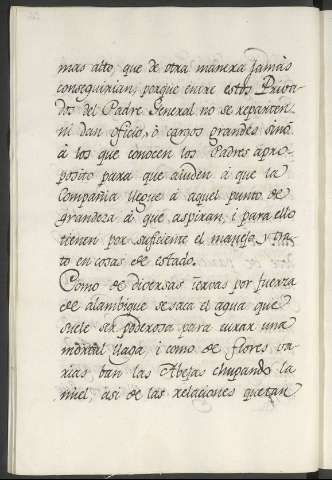 mas alto, que de otra manera jamas
conseguirian, porque entre estos Priva-
dos del Padre General no se reparten
ni dan oficios, ò cargos grandes sinò
à los que conocen los Padres apro-
posito para que aiuden à que la
Compañia llegue à aquel punto de
grandeza à que aspiran, i para ello
tienen por suficiente el manejo, y tra-
to en cosas de estado.
Como de diversas iervas por fuerza
de alambique se saca el agua que
suele ser poderosa para curar una
mortal llaga i como de flores va-
rias ban las Abejas chupando la
miel, asi de las relaciones que tan